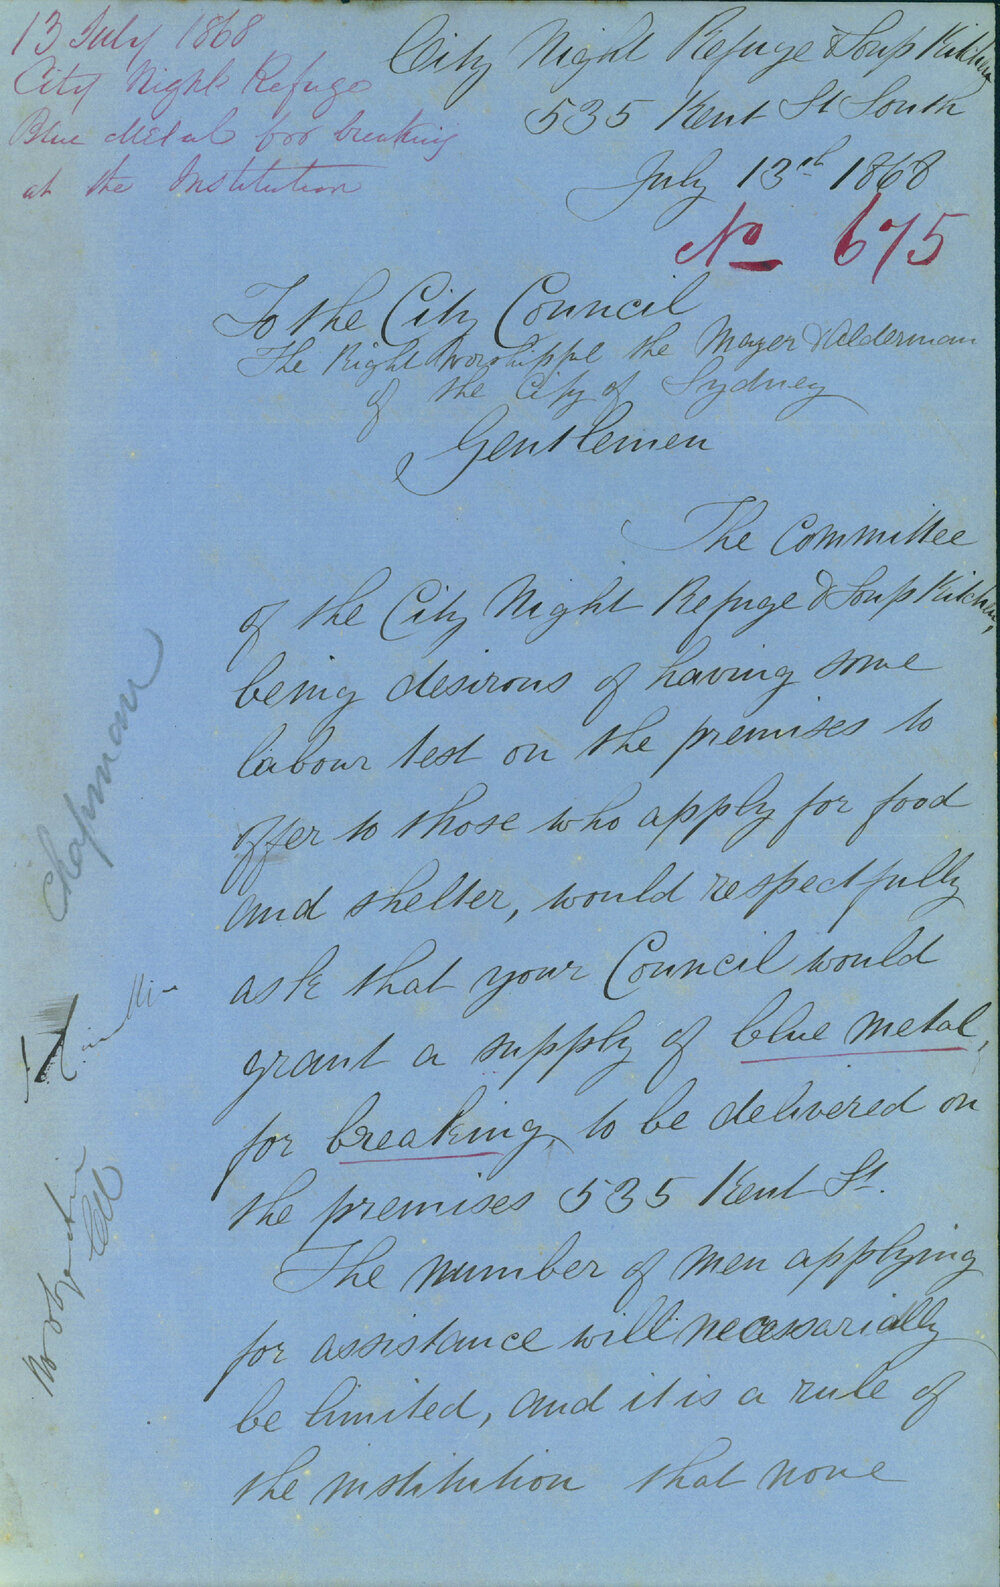 13 July 1868
City Night Refuge
Blue Metal for breaking
at the Institution
City Night Refuge & Soup Kitchen
535 Kent St South
July 13th 1868
No 675
To the City Council
The Right Worshippl the Mayer & Alderman
of the City of Sydney
Gentlemen
The Committee
of the City Night Refuge & Soup Kitchen,
being desirous of having some
labour test on the premises to
offer to those who apply for food
and shelter, would respectfully
ask that your Council would
grant a supply of blue metal,
for breaking, to be delivered on
the premises 535 Kent St.
The number of men applying
for assistance will necessarially
be limited, and it is a rule of
the institution that none
Chapman
No objection